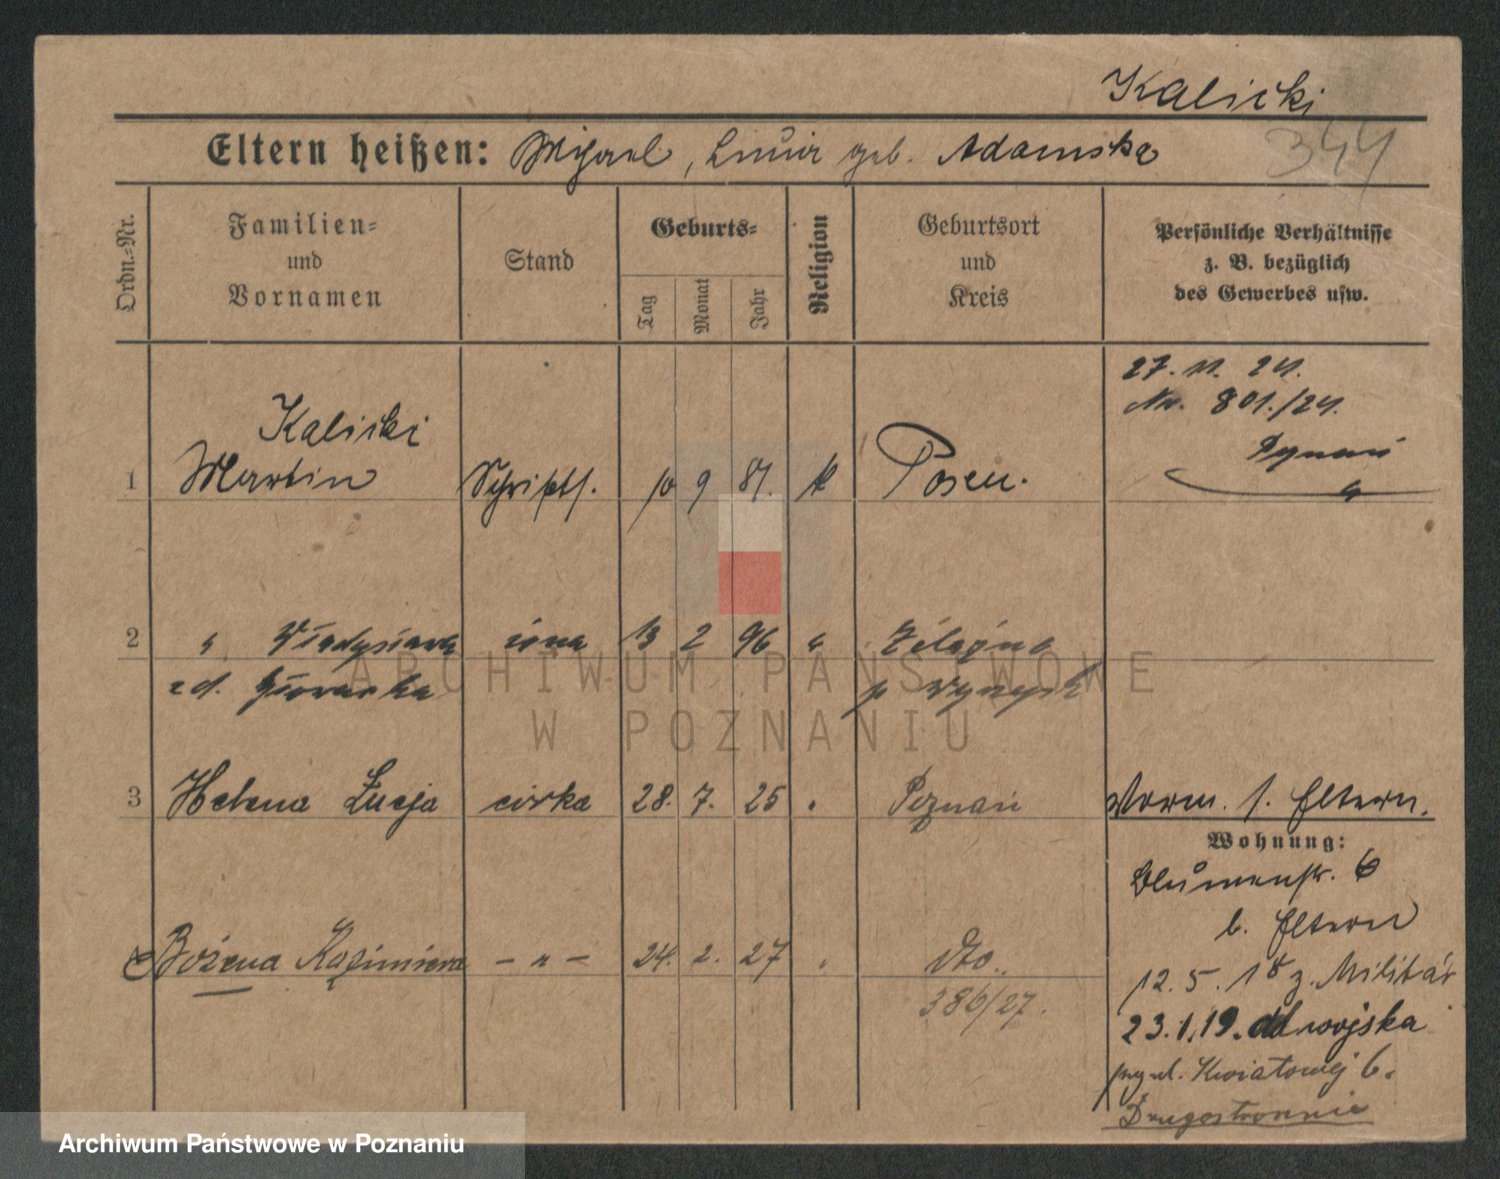 Kalicki
344
Eltern heißen: Michael, Louise geb. Adamska
Ordn.=Nr.
Familien=
und
Vornamen
Stand
Geburts=
Tag
Monat
Jahr
Religion
Geburtsort
und
Kreis
Persönliche Verhältnisse
z. B. bezüglich
des Gewerbes usw.
27. 11. 24.
Nr. 801./24.
Kalicki
1 Martin Schrifts. 10 9 87. k Posen.
2 " Władysława żona 13 2 96 "
zd. Głowacka
3 Helena Łucja córka 28. 7. 25 " Poznań Vorm. s. Eltern.
Wohnung:
Blumenstr. 6
b. Eltern
Bożena Kazimiera - " - 24. 2. 27 " dto.
386/27.
12. 5. 18 z. Militär
23.1.19. od wojska
przy ul. Kwiatowej 6.
Drugostronnie
ARCHIWUM PAŃSTWOWE
W POZNANIU
Archiwum Państwowe w Poznaniu